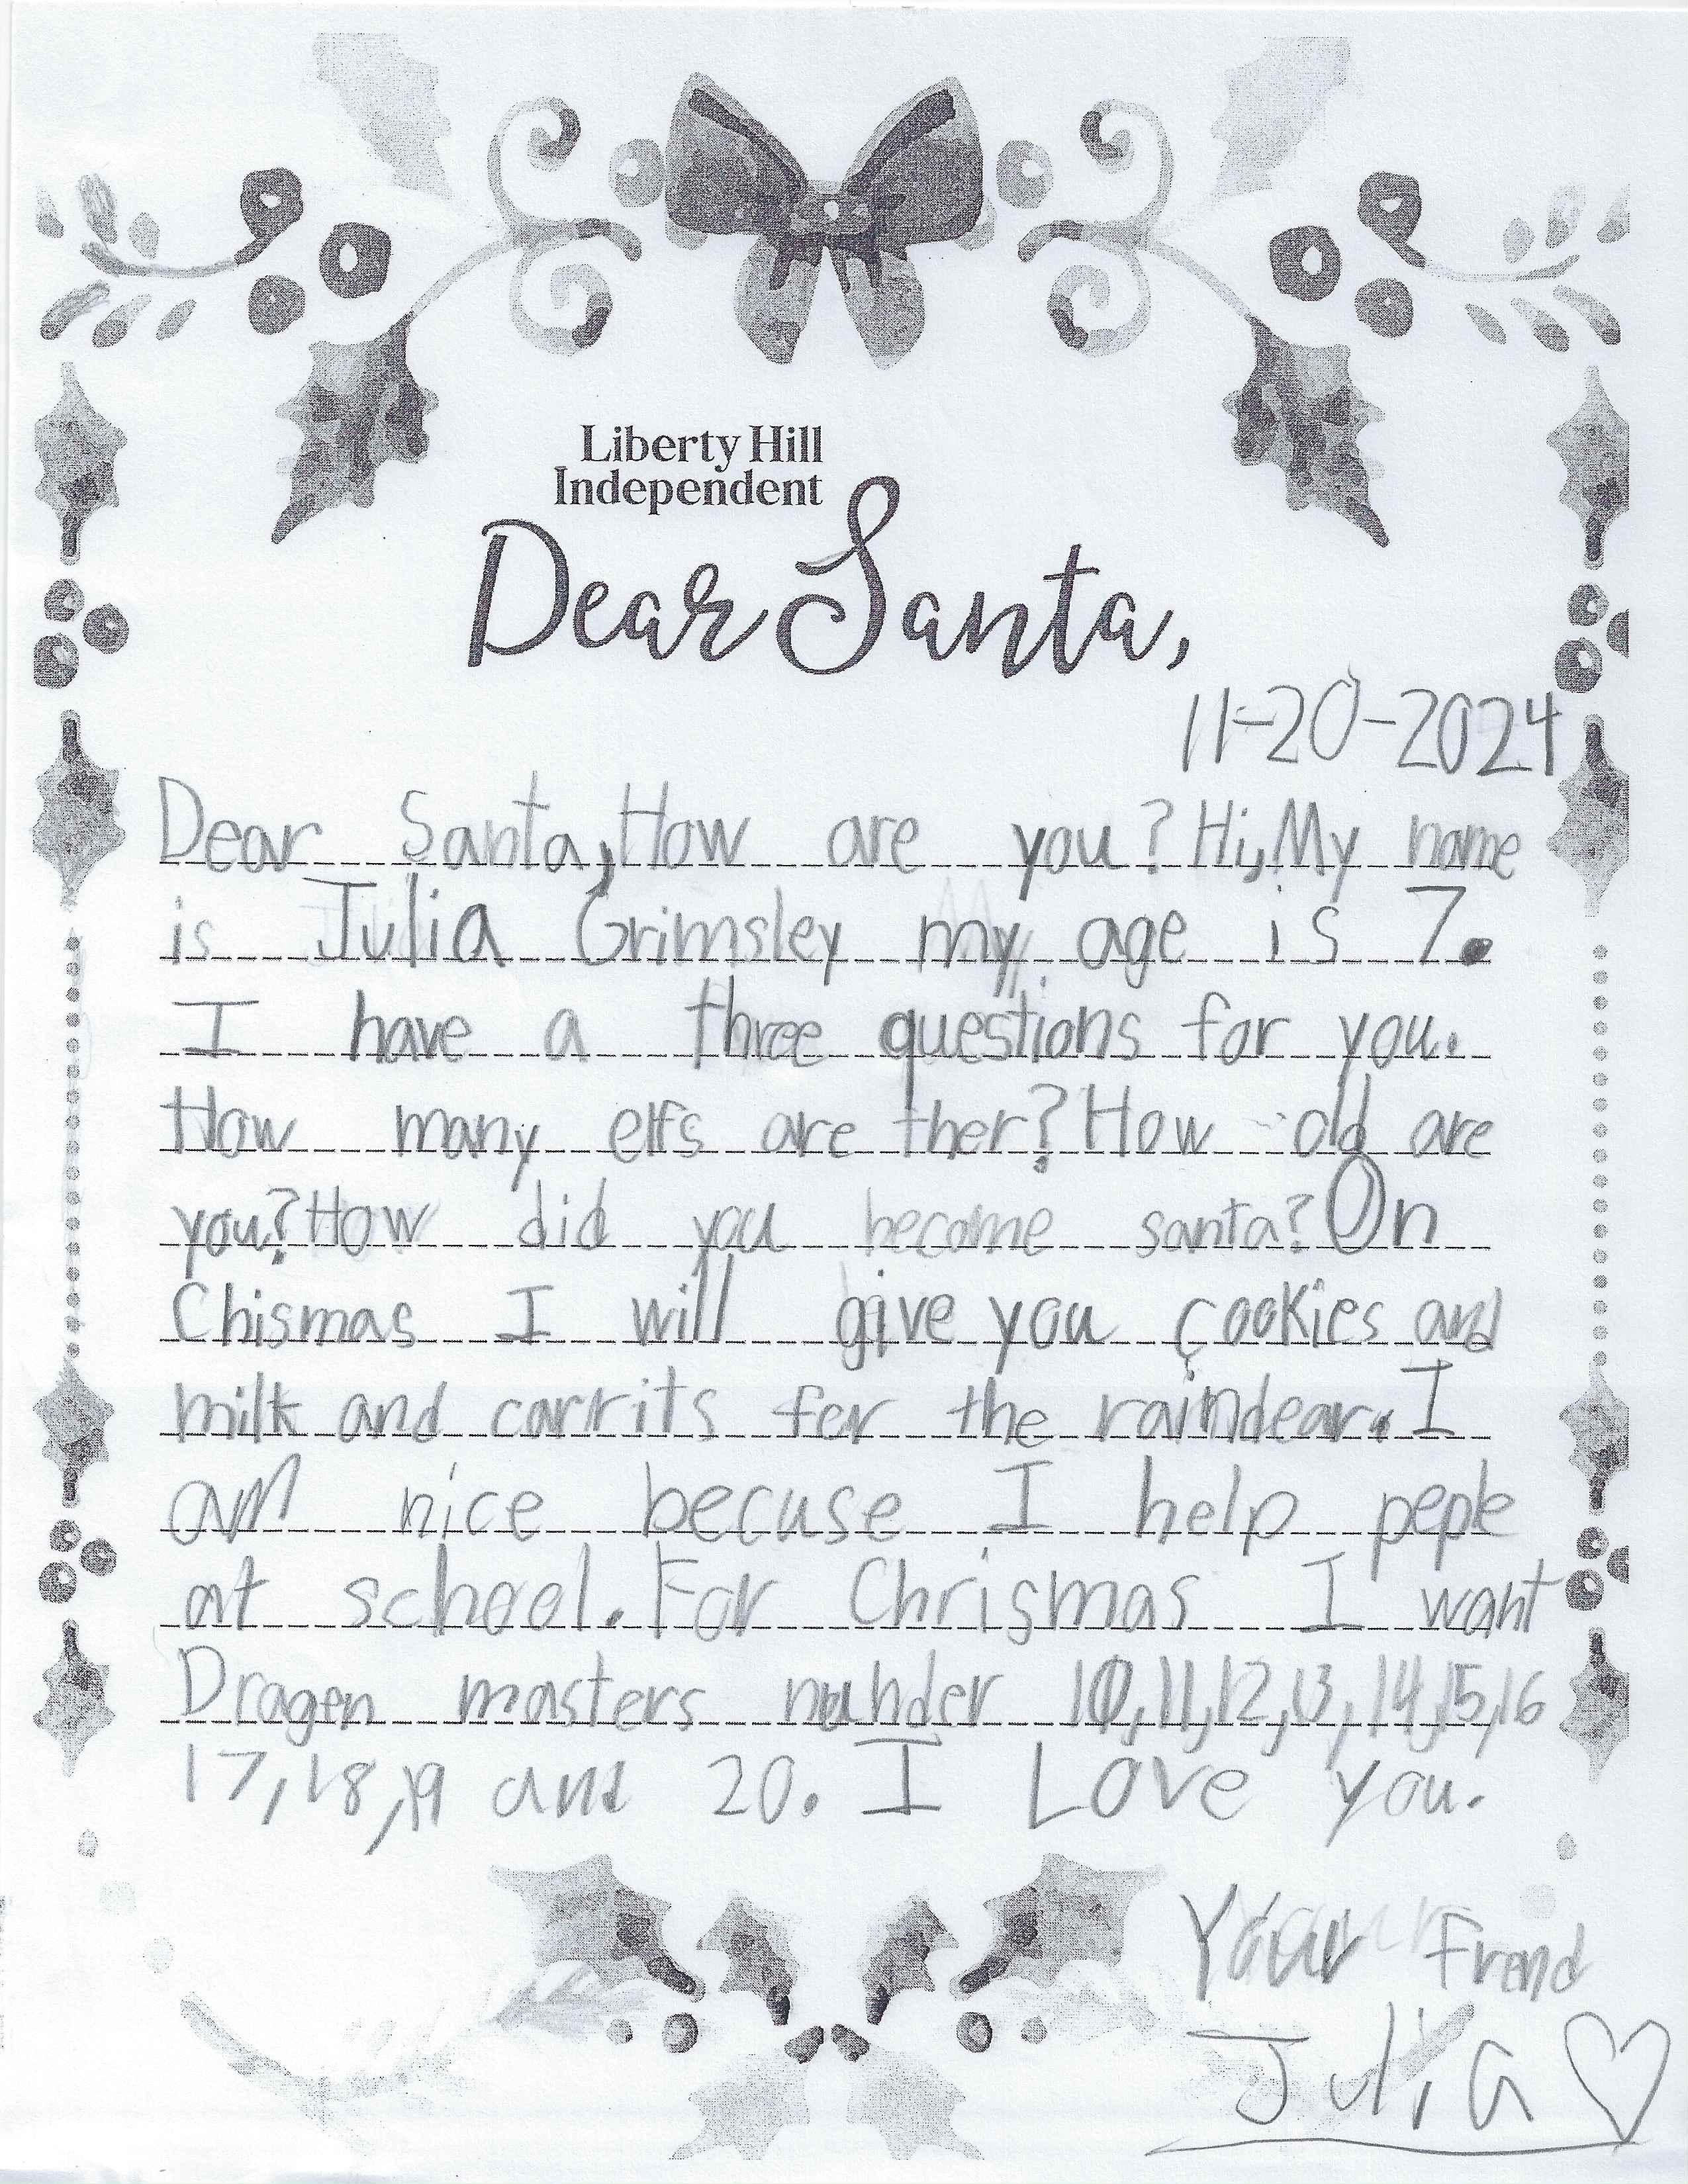 Liberty Hill
Independent
Dear Santa,
11-20-2024
Dear Santa, How are you? Hi, My name
is Julia Grimsley my age is 7.
I have a three questions for you.
How many elfs are ther? How old are
you? How did you become santa? On
Chismas I will give you cookies and
milk and carrits for the raindear. I
am nice becuse I help peple
at school. For Chrismas I want
Dragen masters nuhder 10, 11, 12, 13, 14, 15, 16
17, 18, 19 and 20. I Love you.
Your Frend
Julia